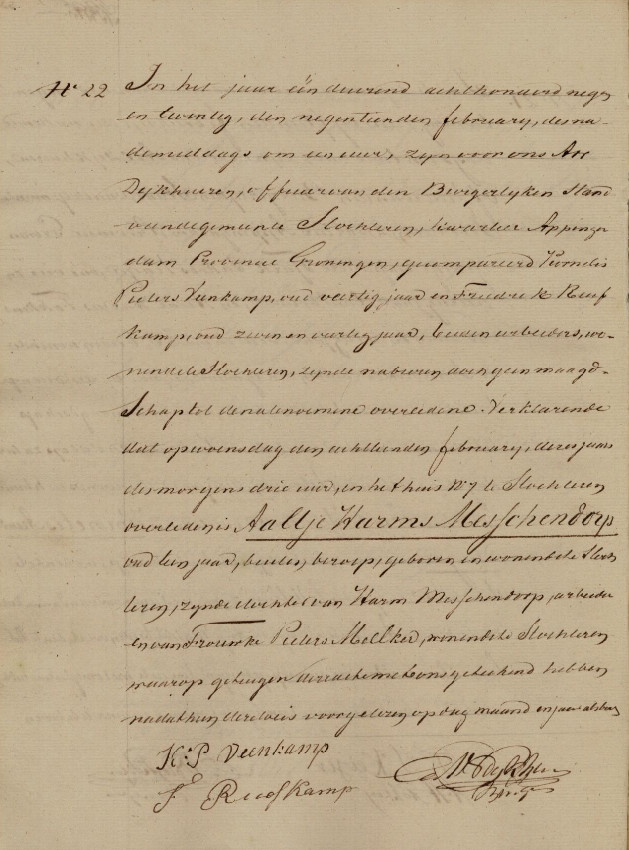 N° 22 In het jaar één duizend achthonderd negen
en twintig, den negentienden february, des na-
demiddags om een uur, zyn voor ons
Dykhuizen, officier van den Burgerlyken Stand
van de gemeente Slochteren, kwartier Appinge
dam Provincie Groningen, gecompareerd Kornelis
Pieters Veenkamp, oud veertig jaar en Fredrik Ruts
kamp, oud zeven en veertig jaar, beiden arbeiders, wo-
nende te Slochteren, zynde naburen doch geen maagd-
schap tot de na tenoemene overledene. Verklarende
dat op woensdag den achttienden february, dezes jaars
des morgens drie uur, in het huis N° 7 te Slochteren
overleden is Aaltje Harms Messchendorp
oud tien jaar, buiten beroep, geboren en wonende te Sloch
teren, zynde dochter van Harm Messchendorp, arbeider
en van Frouwke Pieters Melker, wonende te Slochteren
waarop getuigen deze acte met ons geteekend hebben
nadat hun dezelve is voorgelezen op dag maand en jaar als boven
K: P Veenkamp
F Rutskamp